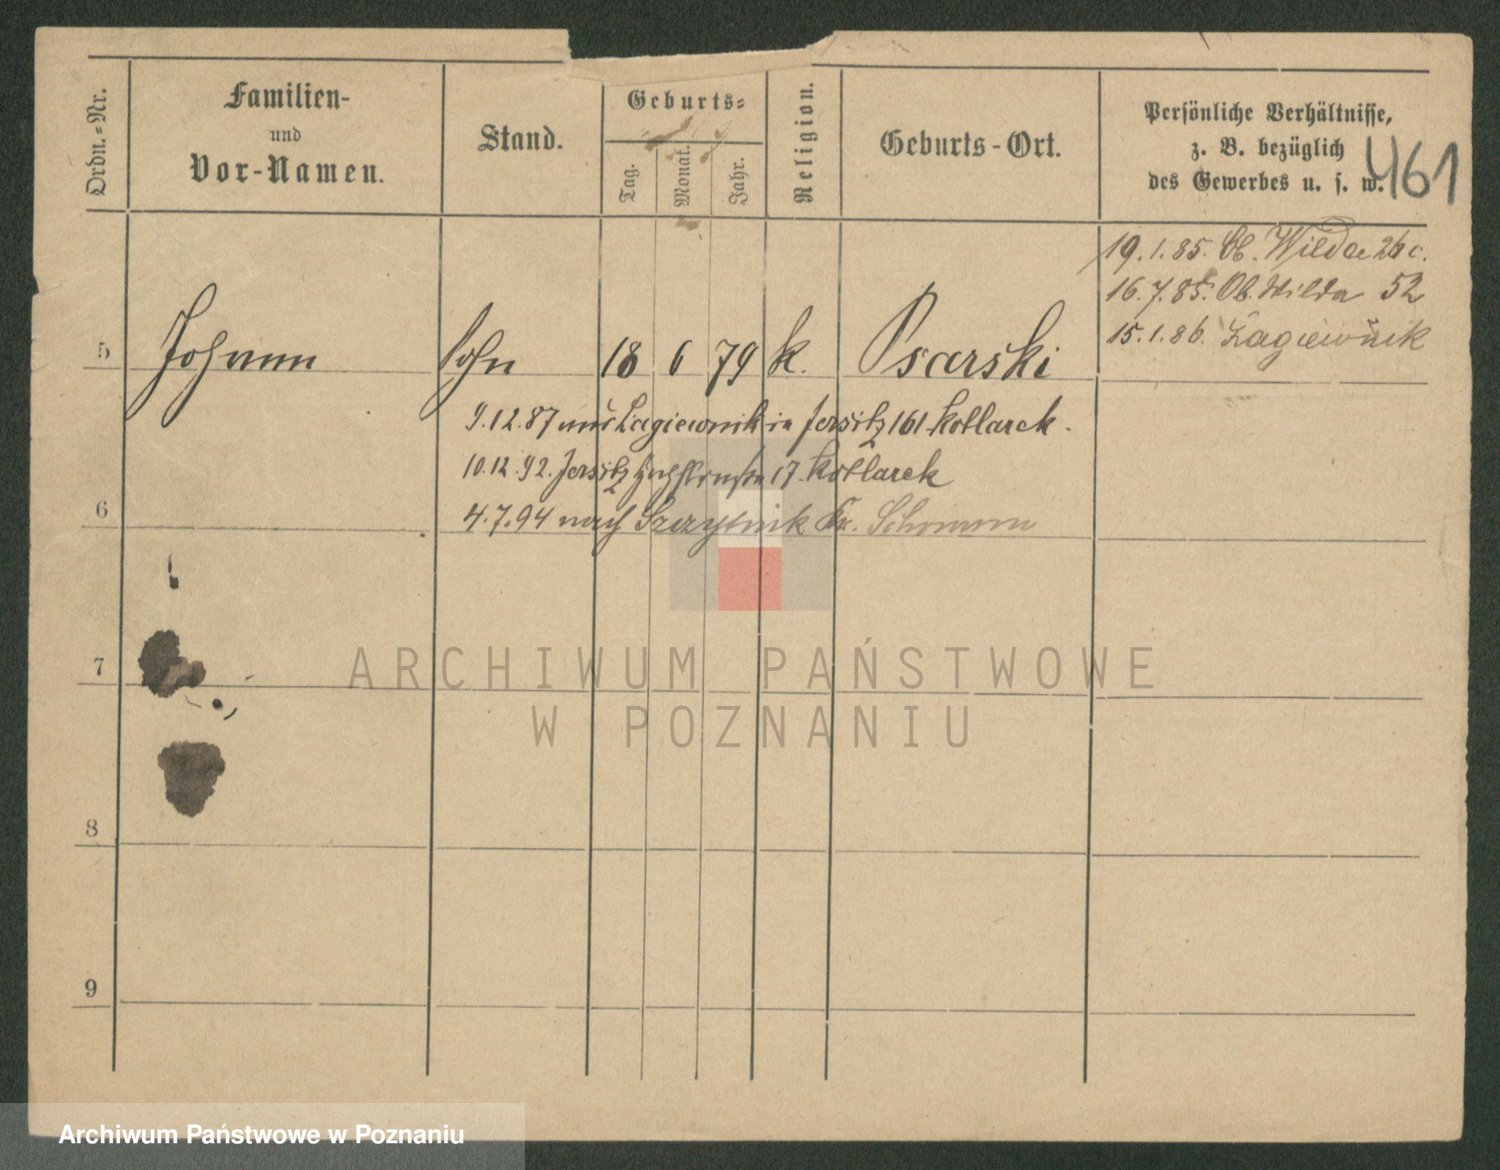 Ordn.=Nr.
Familien-
und
Vor-Namen.
Stand.
Geburts=
Tag.
Monat.
Jahr.
Religion.
Geburts-Ort.
Persönliche Verhältnisse,
z. B. bezüglich
des Gewerbes u. s. w.
461
19.1.85. Ob. Wilda 26c.
16.7.85. Ob. Wilda 52
15.1.86. Łagiewnik
5 Johann Sohn 18 6 79 k. Psarski
9.12.87 aus Łagiewnik in Jersitz 161 Kotlarek.
10.12.92. Jersitz 17. Kotlarek
6
4.7.94 nach Szczytnik Kr. Schrimm
7
8
9
ARCHIWUM PAŃSTWOWE
W POZNANIU
Archiwum Państwowe w Poznaniu